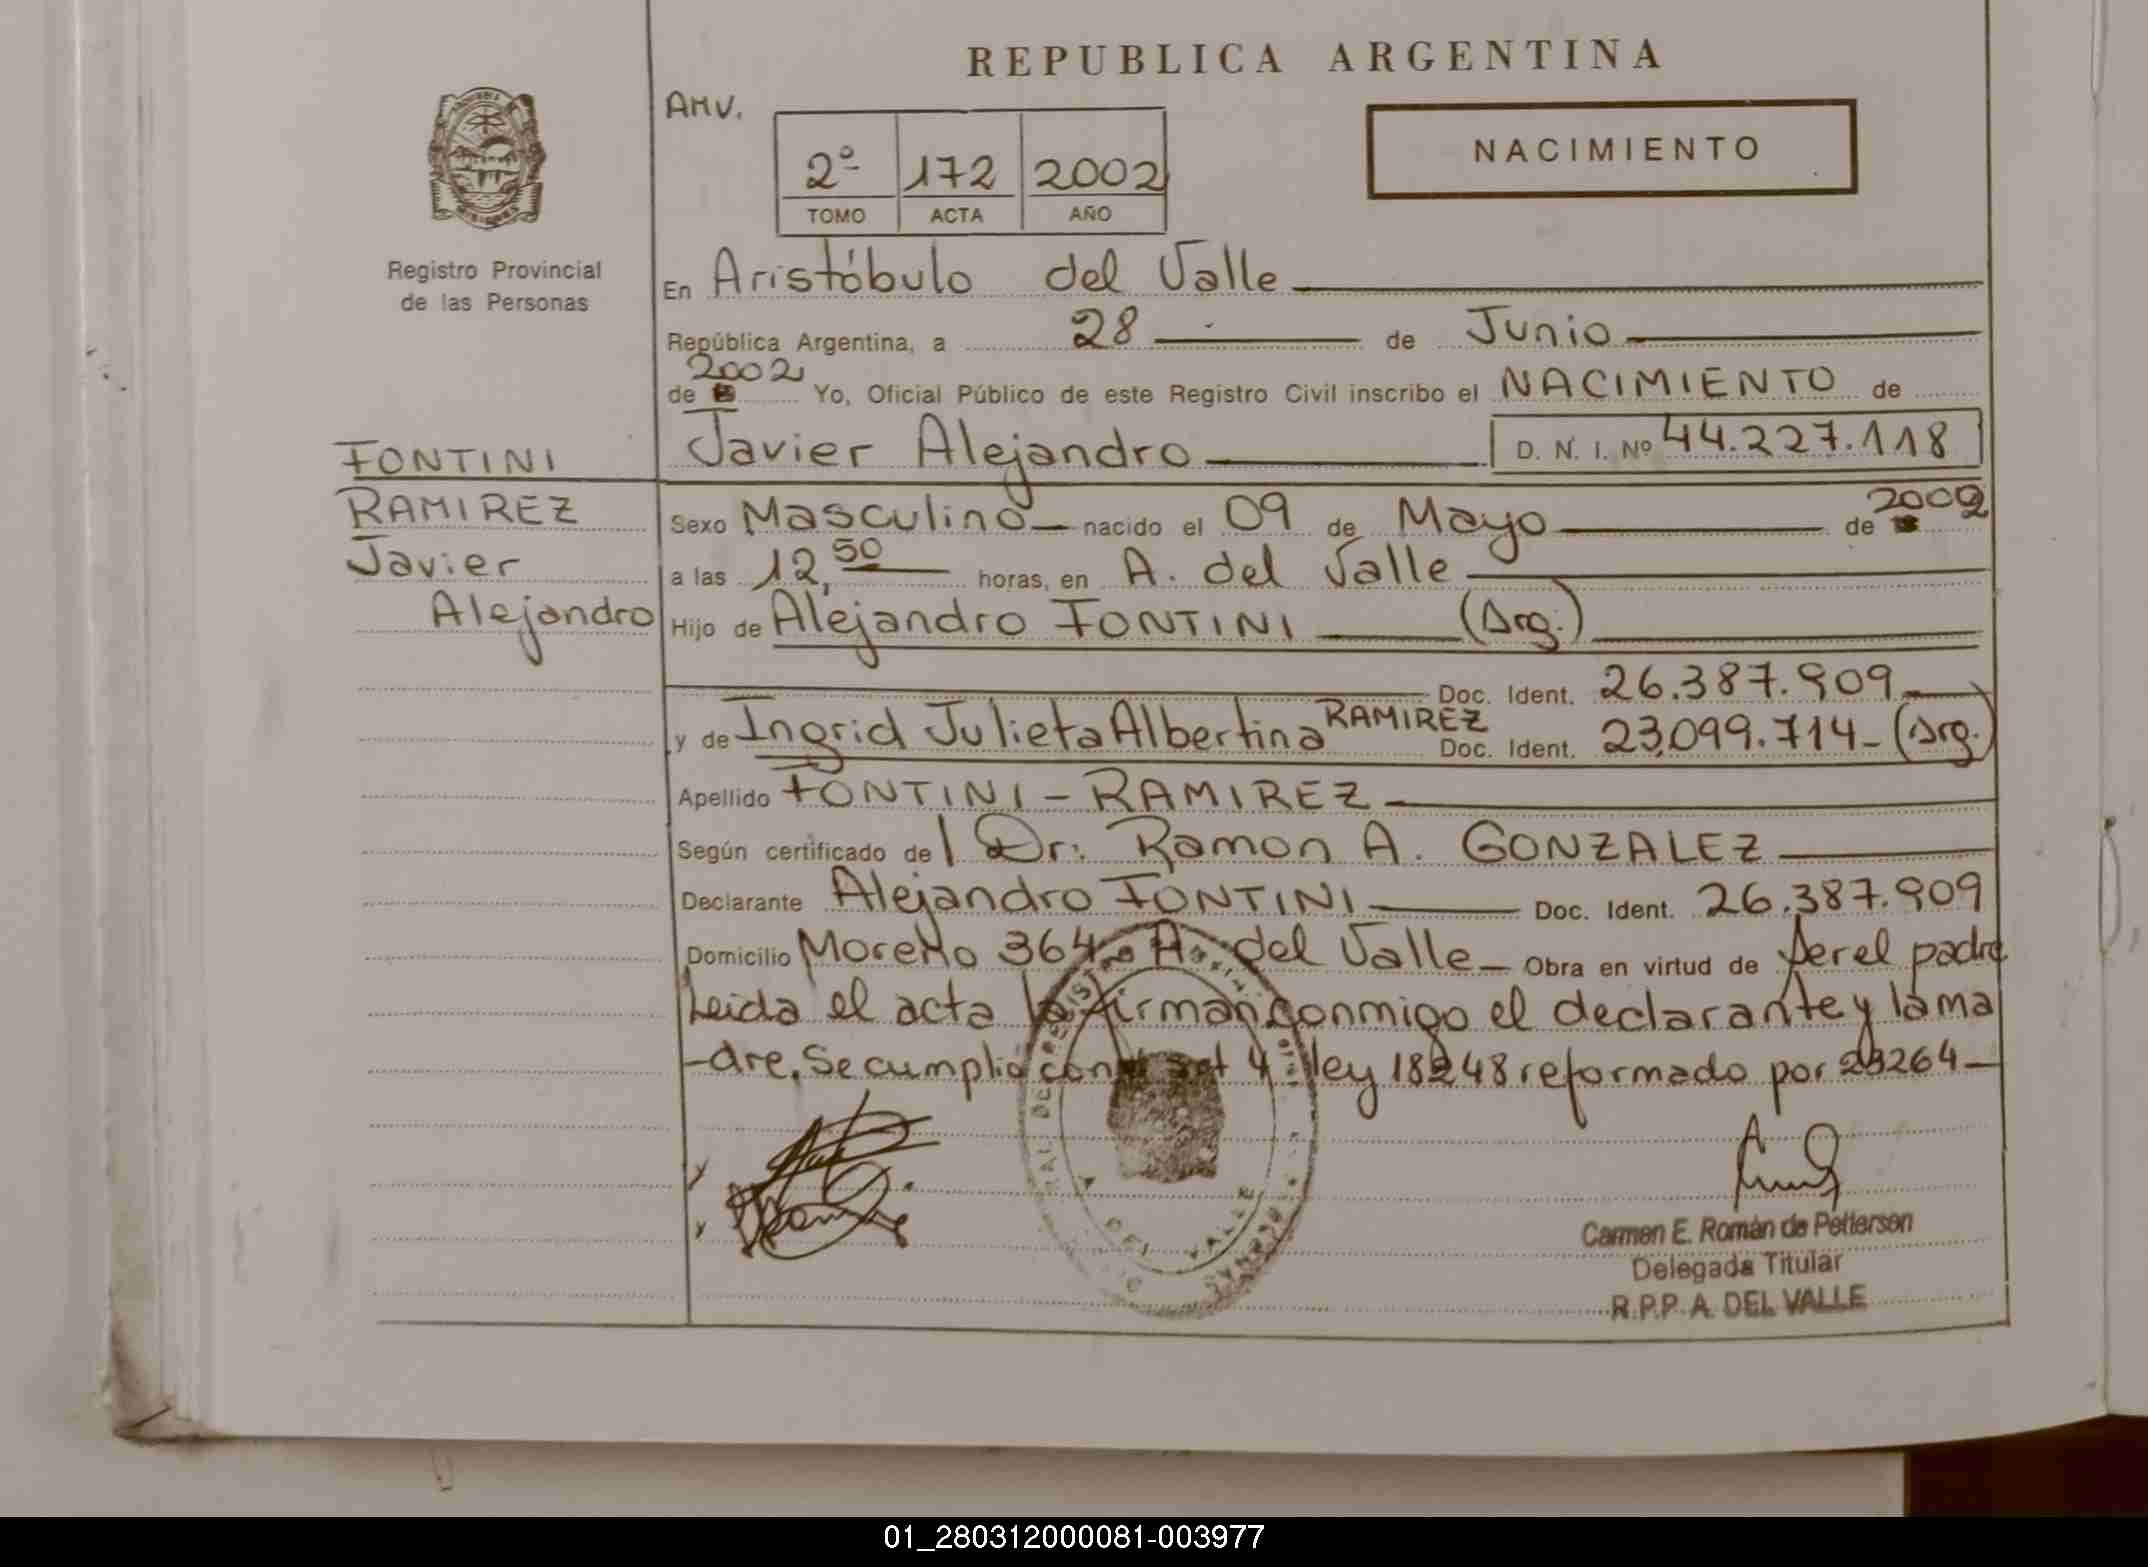 REPUBLICA ARGENTINA
AMV.
NACIMIENTO
2º 172 2002
TOMO ACTA AÑO
Registro Provincial
de las Personas
En Aristóbulo del Valle
República Argentina, a 28 de Junio
2002
de Yo, Oficial Público de este Registro Civil inscribo el NACIMIENTO de
Javier Alejandro D. N. I. Nº 44.227.118
FONTINI
RAMIREZ
Javier
Alejandro
Sexo Masculino nacido el 09 de Mayo de 2002
a las 12,50 horas, en A. del Valle
Hijo de Alejandro FONTINI (Arg.)
Doc. Ident. 26.387.909
y de Ingrid Julieta Albertina RAMIREZ Doc. Ident. 23.099.714- (Arg.)
Apellido FONTINI-RAMIREZ
Según certificado del Dr. Ramon A. GONZALEZ
Declarante Alejandro FONTINI Doc. Ident. 26.387.909
Domicilio Moreno 364 A. del Valle Obra en virtud de ser el padre
Leida el acta la firman conmigo el declarante y la ma
-dre. Se cumplio con art 4 ley 18248 reformado por 23264-
Carmen E. Román de Pettersen
Delegada Titular
R.P.P. A. DEL VALLE
01_280312000081-003977